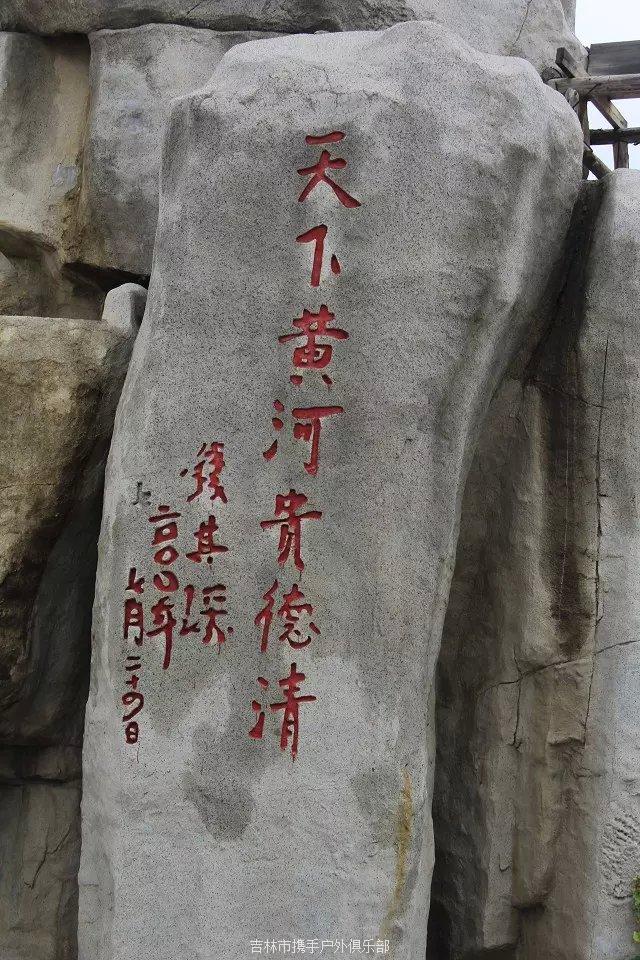 天下黄河贵德清
錢其琛
二〇〇〇年
七月二十四日
吉林市携手户外俱乐部